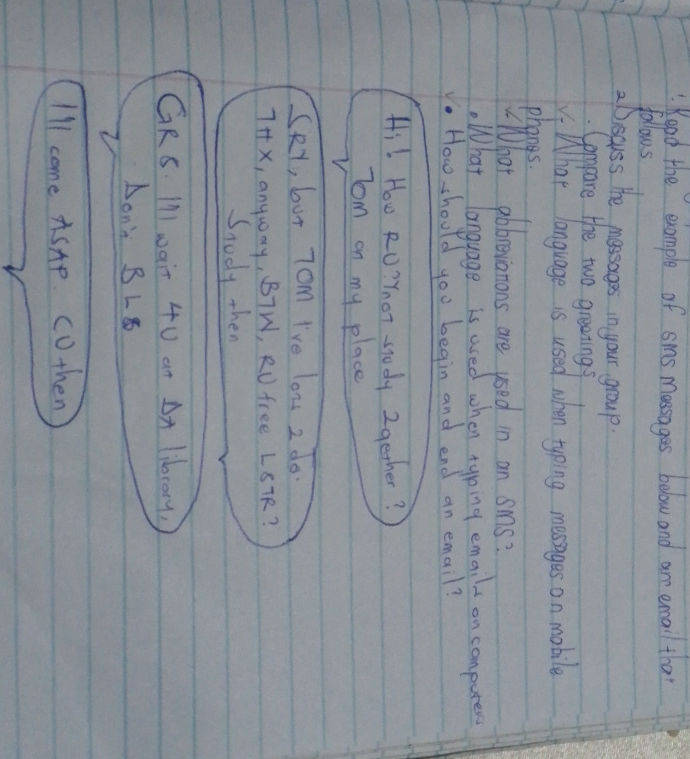 1. Read the example of sms messages below and an email that
follows
2. Discuss the messages in your group.
. Compare the two greetings
✓ What language is used when typing messages on mobile
phones.
✓ What abbreviations are used in an SMS?
• What language is used when typing emails on computers
✓• How should you begin and end an email?
Hi! How RU? Ynot study 2gether?
TOM on my place
SRY, but TOM I've lots 2 do.
THX, anyway, BTW, RU free L8TR?
Study then
GR8. I'll wait 4U at Dx library,
Don't B L8
I'll come ASAP. CU then